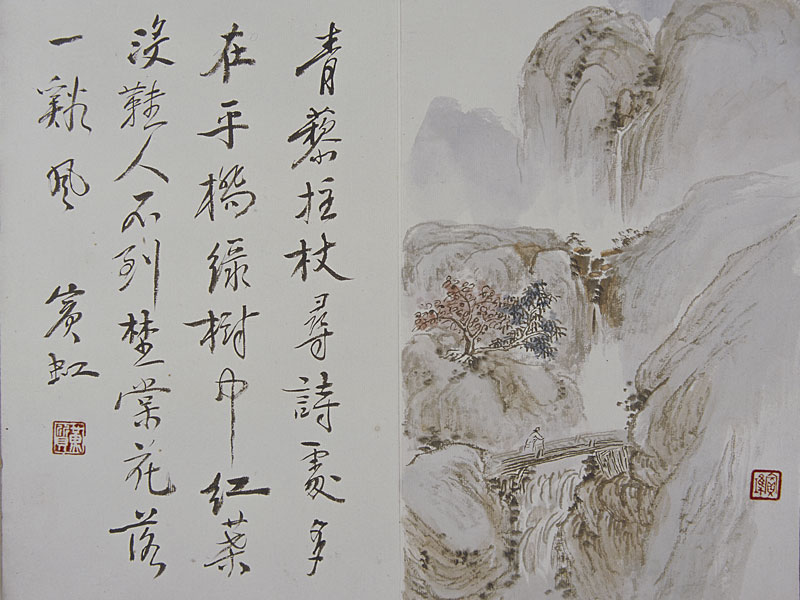 青藜拄杖尋詩處多
在平橋綠樹中紅葉
沒鞋人不到埜棠花落
一谿風
賓虹